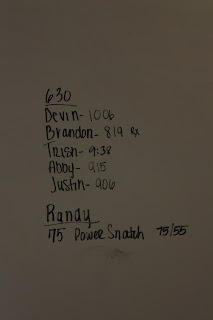 630
Devin- 1006
Brandon- 819 Rx
Trish- 9:38
Abby- 915
Justin- 906
Randy
75 Power Snatch 75/55